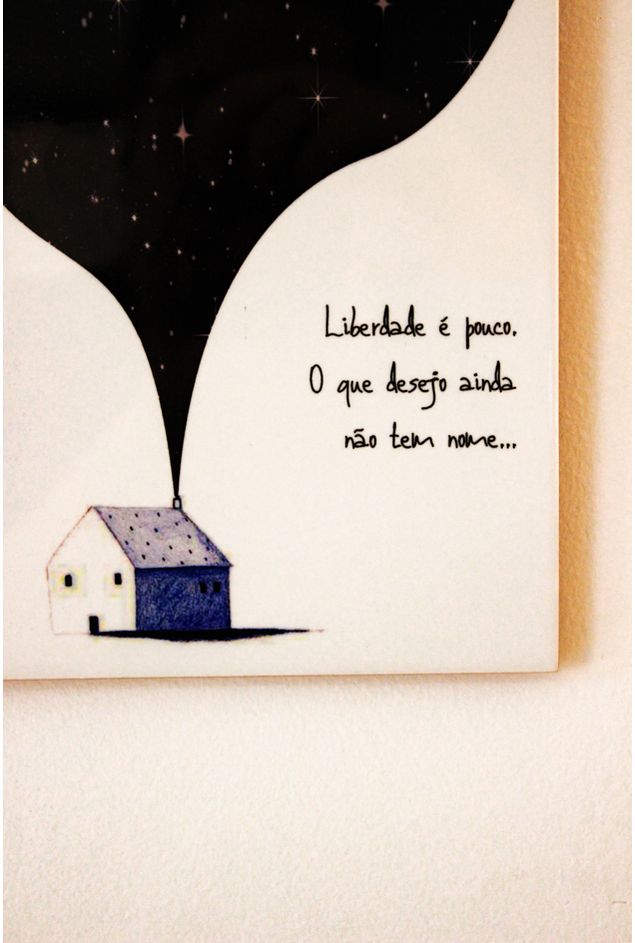 Liberdade é pouco.
O que desejo ainda
não tem nome...